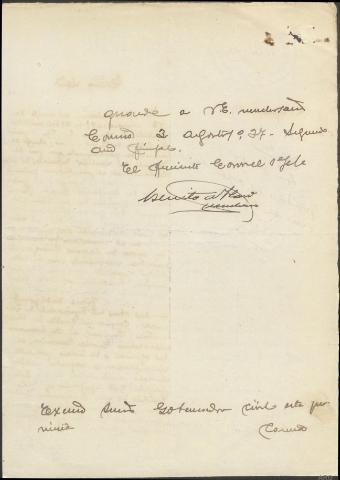 guarde a V.E. muchos años
Coruña 2 agosto, 1937. Segundo
año Triunfal.
El Teniente Coronel 1er Jefe
Benito de Haro
Excmo Señor Gobernador Civil esta pro
vincia Coruña